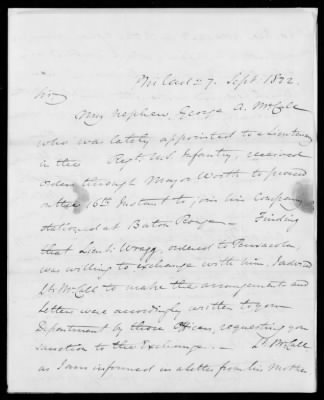 Philad. 27. Sept 1822.
Sir,
My nephew, George A. McCall
who was lately appointed to a Lieutency
in the Regt. U.S. Infantry, received
orders through Major Worth to proceed
on the 16th Instant to join his Company
stationed at Baton Rouge. Finding
that Lieut. Wragg, ordered to Pensacola,
was willing to exchange with him, I advised
Lt. McCall to make the arrangement and
Letters were accordingly written to your
Department by those Officers, requesting your
sanction to the Exchange. Lt. McCall
as I am informed in a letter from his Mother